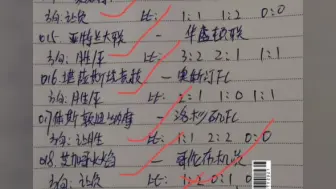 方向：让负 比：1：1 1：2 0：0
015. 亚特兰大联 — 华盛顿联
方向：胜/平 比：3：2 2：1 1：1
016. 堪萨斯竞技 — 奥斯汀FC
方向：胜/平 比：2：1 1：0 1：1
017. 休斯敦迪纳摩 — 洛杉矶FC
方向：让胜 比：1：1 2：2 0：0
018. 芝加哥火焰 — 哥伦布机员
方向：让负 比：1：2 0：1 0：0